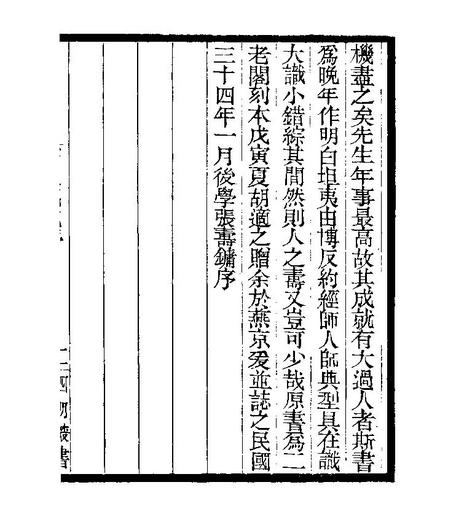 機盡之矣先生年事最高故其成就有大過人者斯書
爲晚年作明白坦夷由博反約經師人師典型具在識
大識小錯綜其間然則人之壽又豈可少哉原書爲二
老閣刻本戊寅夏胡適之贈余於燕京爰並誌之民國
三十四年一月後學張壽鏞序
四明叢書